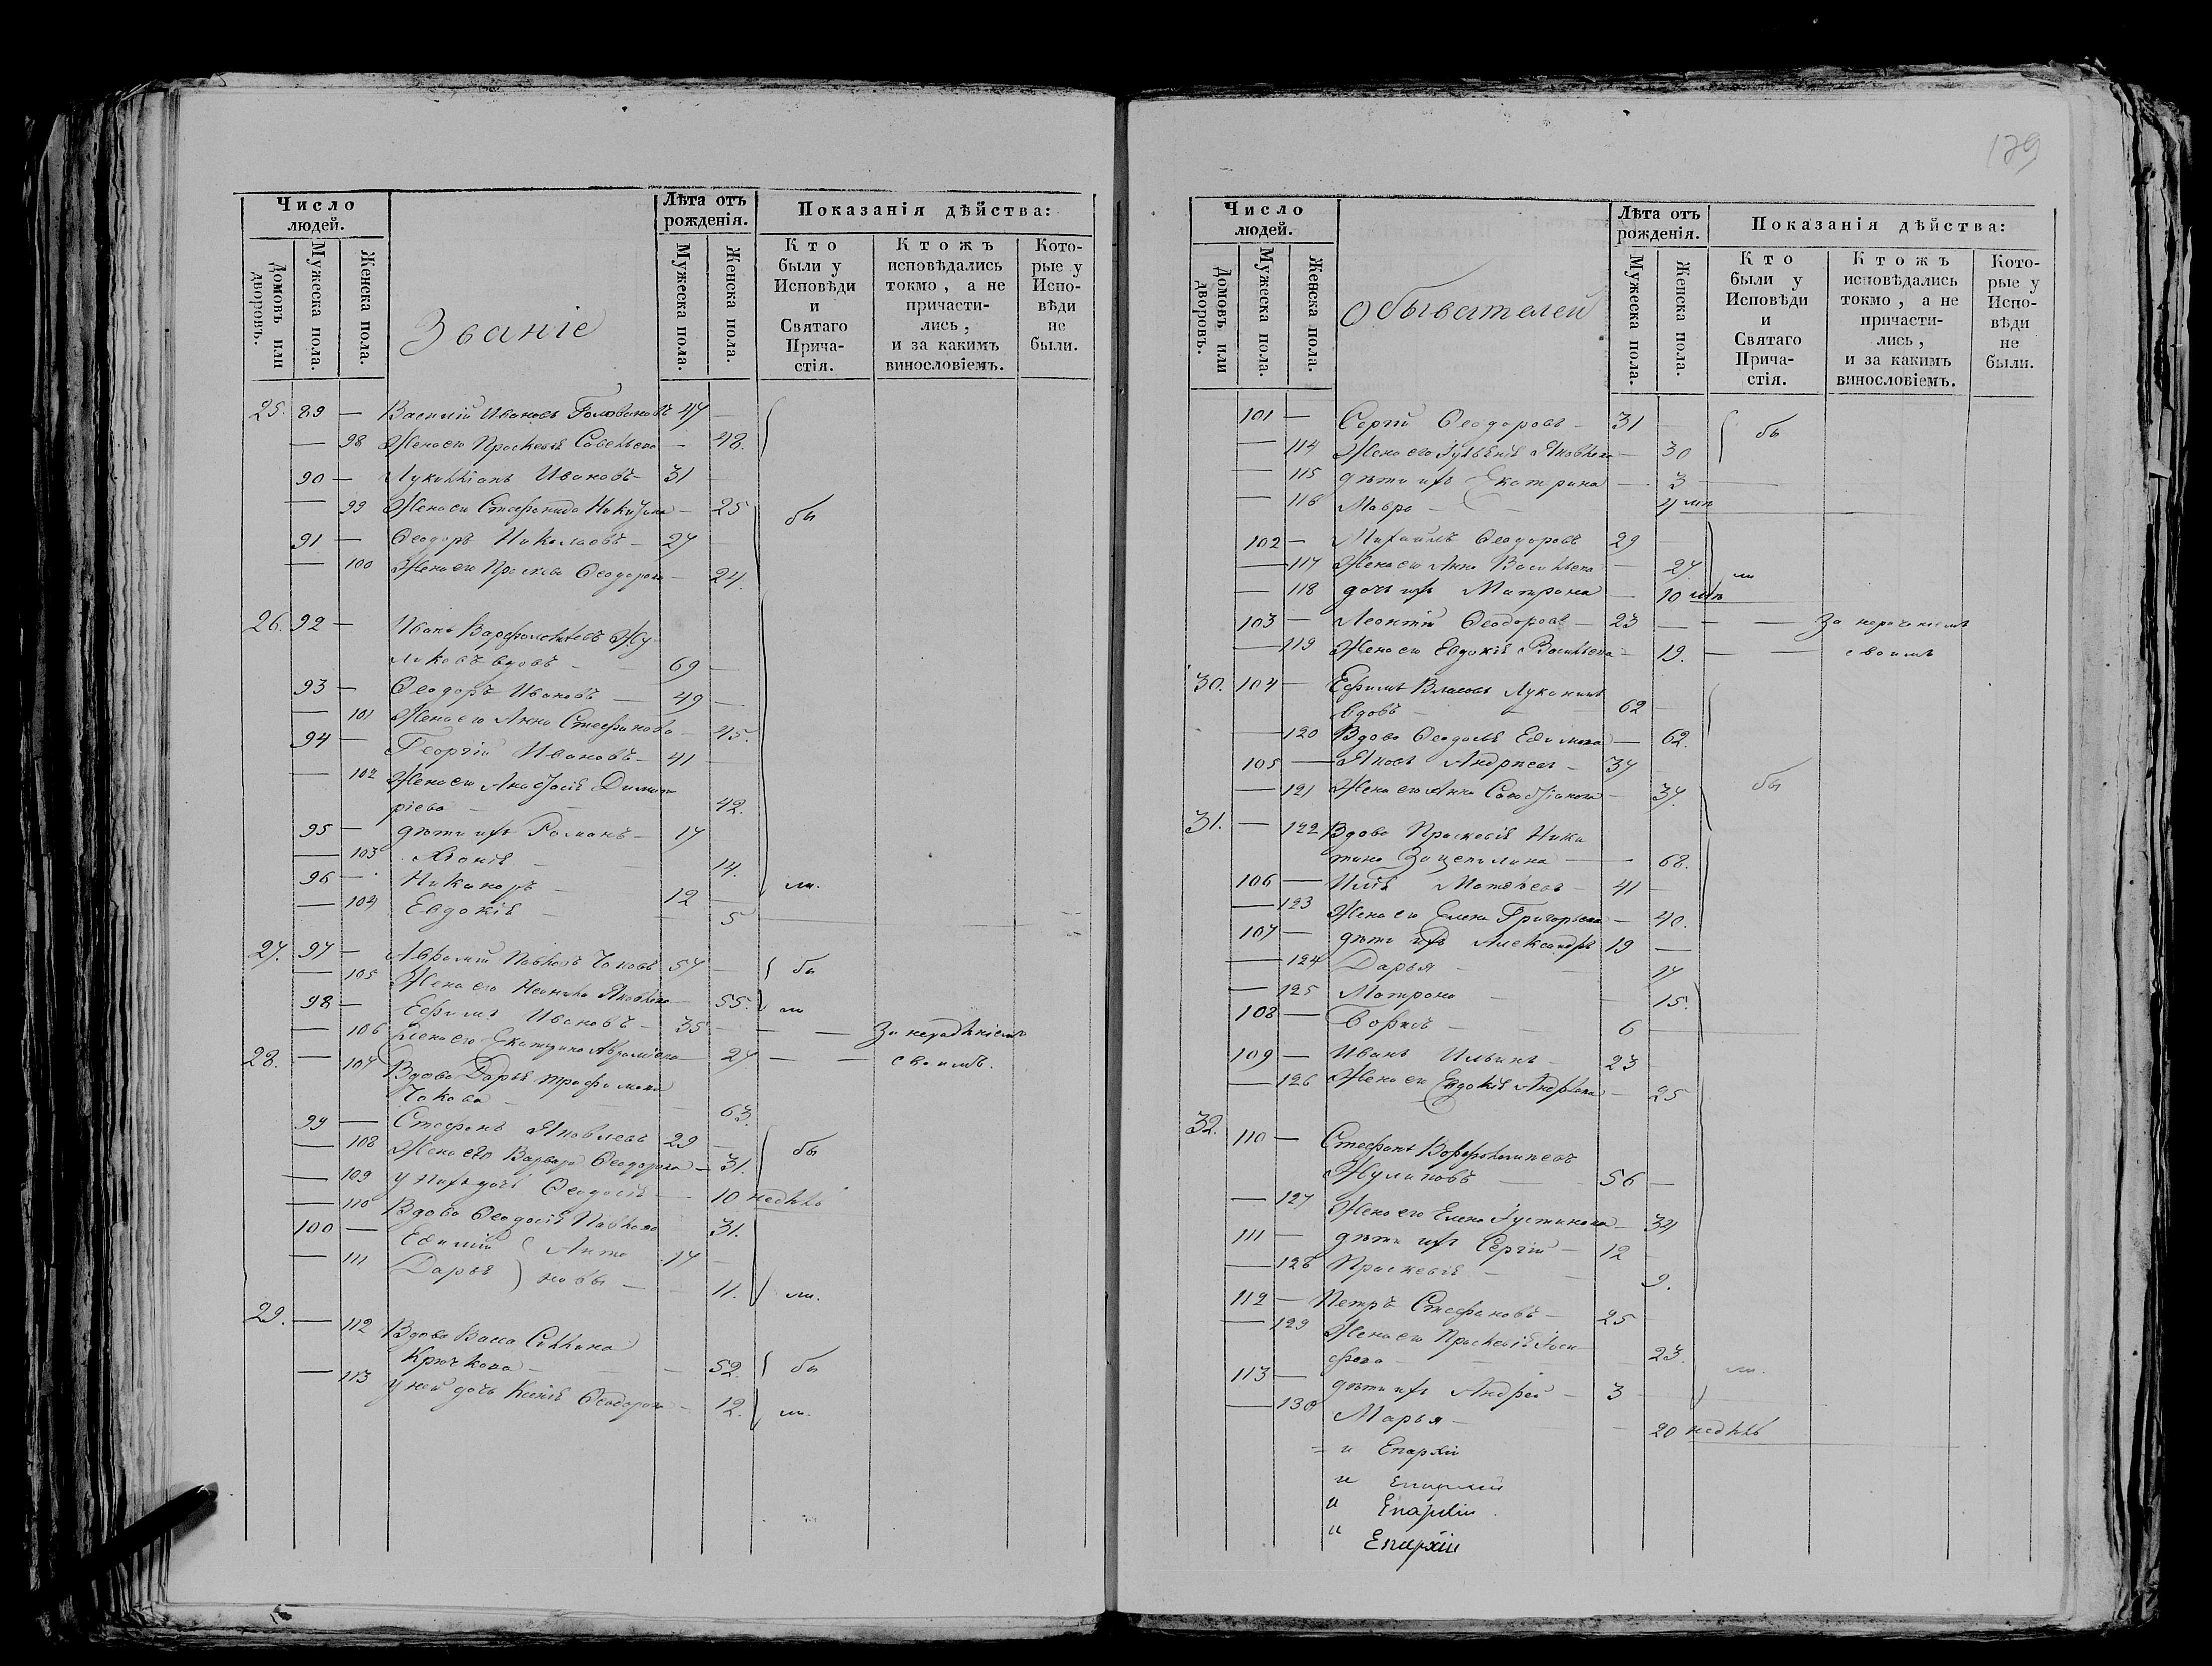 179
Число людей.
Домовъ или дворовъ.
Мужеска пола.
Женска пола.
Званіе
Лѣта отъ рожденія.
Мужеска пола.
Женска пола.
Показанія дѣйства:
Кто были у Исповѣди и Святаго Причастія.
Ктожъ исповѣдались токмо, а не причастились, и за какимъ винословіемъ.
Которые у Исповѣди не были.
25. 89 — Василій Ивановъ Головановъ 47 —
— 98 Жена его Праскевія Савельева — 48.
90 — Лукилліанъ Ивановъ — 31 —
— 99 Жена его Стефанида — 25 бы
91 — Ѳеодоръ Николаевъ — 27 —
— 100 Жена его Праскева Ѳеодорова — 24.
26. 92 — Иванъ Варфоломеевъ Жу
ликовъ вдовъ — 69 —
93 — Ѳеодоръ Ивановъ — 49 —
— 101 Жена его Анна Стефанова — 45.
94 — Георгій Ивановъ — 41 —
— 102 Жена его Анастасія Димит
ріева — 42.
95 — дѣти ихъ Романъ — 17
— 103 Хіонія — 14.
96 — Никаноръ — 12 — ли.
— 104 Евдокія — 5
27. 97 — Аврамій Павловъ Чоковъ 57 — бы
— 105 Жена его Неонила Яковлева — 55. ли
98 — Ефимъ Ивановъ — 35 — — — За нерадѣніемъ
— 106 Жена его Екатерина Аврамьева — 27. — — своимъ.
28. — 107 Вдова Дарья Трофимова
Чокова — 63.
99 — Стефанъ Яковлевъ 29 —
— 108 Жена его Варвара Ѳеодорова — 31. бы
— 109 у нихъ дочь Ѳеодосія — 10 недѣль
— 110 Вдова Ѳеодосія Павлова 31.
100 — Евѳимій } Анто 17 —
— 111 Дарья } новы — 11. ли.
29. — 112 Вдова Васса
Крючкова — 52. бы
— 113 у ней дочь Ксенія Ѳеодорова — 12. ли.
Число людей.
Домовъ или дворовъ.
Мужеска пола.
Женска пола.
Обывателей
Лѣта отъ рожденія.
Мужеска пола.
Женска пола.
Показанія дѣйства:
Кто были у Исповѣди и Святаго Причастія.
Ктожъ исповѣдались токмо, а не причастились, и за какимъ винословіемъ.
Которые у Исповѣди не были.
101 — Сергій Ѳеодоровъ — 31 — бы
— 114 Жена его Іульянія Яковлева — 30
— 115 дѣти ихъ Екатрина — 3
— 116 Мавра — 4 мѣ
102 — Михаилъ Ѳеодоровъ 29 —
— 117 Жена его Анна Васильева — 27 ли
— 118 дочь ихъ Матрона — 10 мѣ
103 — Леонтій Ѳеодоровъ — 23 — — — За нераченіемъ
— 119 Жена его Евдокія Васильева — 19. — — своимъ
30. 104 — Ефимъ Власовъ Луканинъ
вдовъ — 62 —
— 120 Вдова Ѳеодосья Евѳимова — 62.
105 — Яковъ Андреевъ — 37 — бы
— 121 Жена его Анна Савастіанова — 37.
31. — 122 Вдова Праскевія Ники
тина Зацепилина — 68.
106 — Илія Матѳеевъ — 41 —
— 123 Жена его Елена Григорьева — 40.
107 — дѣти ихъ Александръ 19 —
— 124 Дарья — 17
— 125 Матрона — 15.
108 — Борисъ — 6
109 — Иванъ Ильинъ — 23
— 126 Жена его Евдокія Андреева — 25
32. 110 — Стефанъ Варфоломеевъ
Жуликовъ — 56 —
— 127 Жена его Елена Іустинова — 34
111 — дѣти ихъ Сергій — 12 —
— 128 Праскевія — 9.
112 — Петръ Стефановъ — 25
— 129 Жена его Праскевія Іоси
фова — 23. ли.
113 — дѣти ихъ Андрей — 3
— 130 Марья — 20 недѣль
и Епархіи
и Епархіи
и Епархіи
и Епархіи